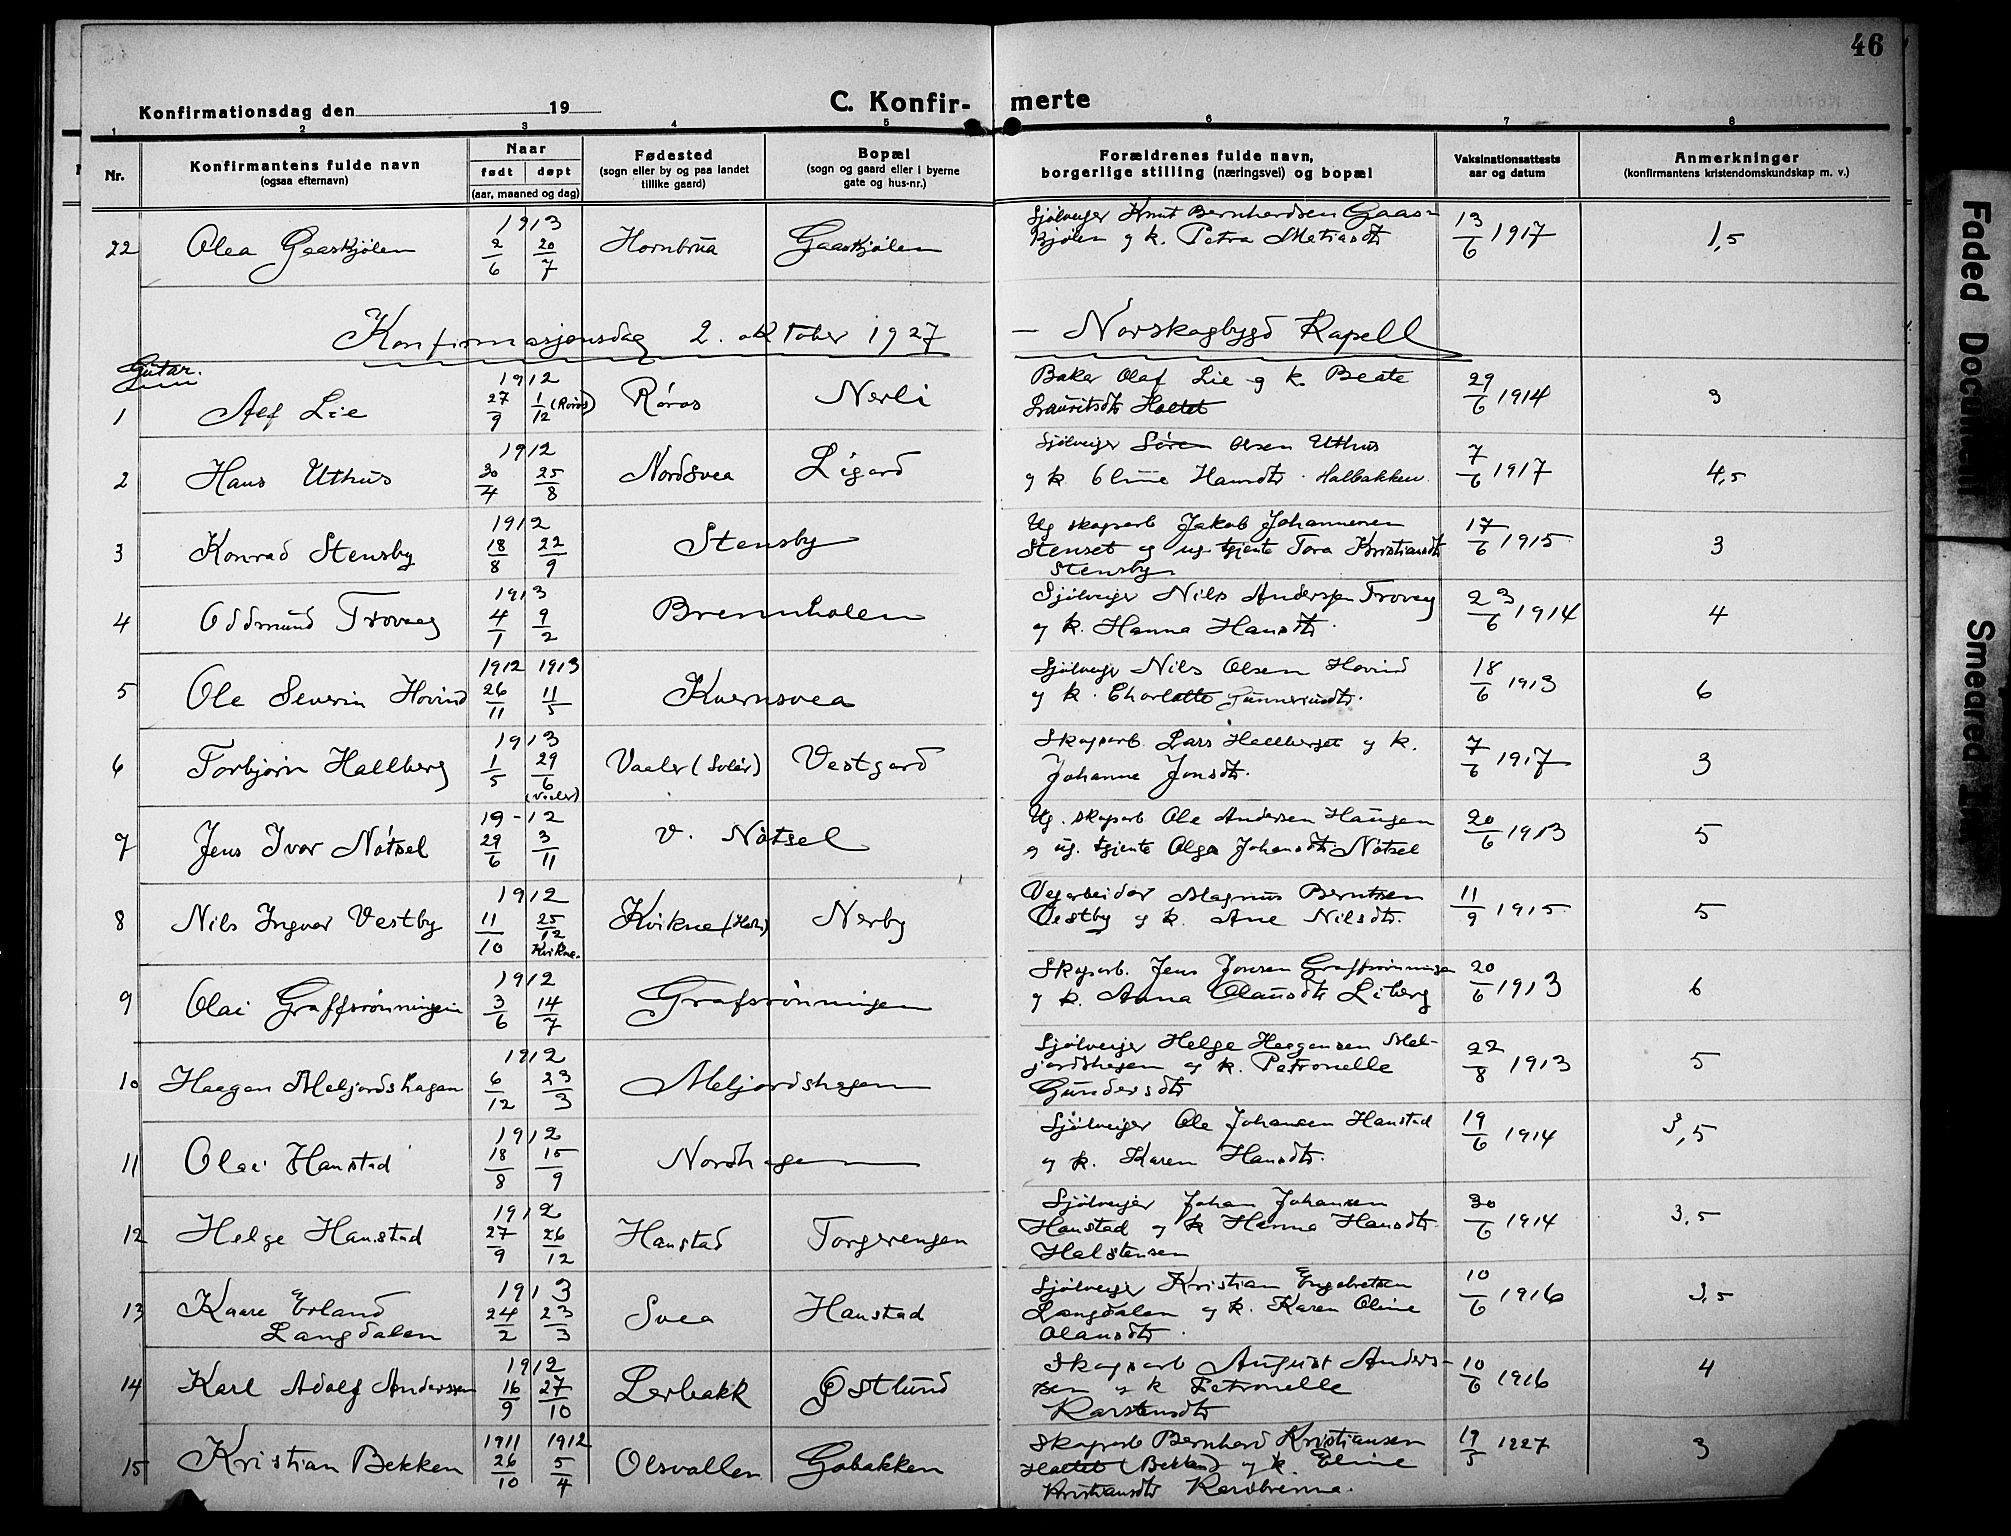 46
Konfirmationsdag den 19
C. Konfir- merte
1 2 3 4 5 6 7 8
Nr.
Konfirmantens fulde navn
(ogsaa efternavn)
Naar
født døpt
(aar, maaned og dag)
Fødested
(sogn eller by og paa landet
tillike gaard)
Bopæl
(sogn og gaard eller i byerne
gate og hus-nr.)
Forældrenes fulde navn,
borgerlige stilling (næringsvei) og bopæl
Vaksinationsattests
aar og datum
Anmerkninger
(konfirmantens kristendomskundskap m. v.)
22 Olea Gaaskjølen 1913 2/6 20/7 Hornbrua Gaaskjølen
Sjølveiger Knut Bernhardsen Gaas-
kjølen og k. Petra Matiasdtr 13/6 1917 1,5
Konfirmasjonsdag 2. oktober 1927 — Norskogbygd Kapell
Gutar.
1 Alf Lie 1912 27/9 1/12 (Røros) Røros Nerli
Baker Olaf Lie og k. Beate
Lauritsdtr Holtet 29/6 1914 3
2 Hans Uthus 1912 30/4 25/8 Nordsvea Ligard
Sjølveiger Søren Olsen Uthus
og k. Oline Hansdtr Halbakken 7/6 1917 4,5
3 Konrad Stensby 1912 18/8 22/9 Stensby
Ug skogsarb Jakob Johannesen
Stenset og ug. tjente Tora Kristiansdtr
Stensby 17/6 1915 3
4 Oddmund Trovaag 1913 4/1 9/2 Brennholen
Sjølveiger Nils Andersen Trovaag
og k. Hanna Hansdtr. 23/6 1914 4
5 Ole Severin Hovind 1912 26/11 1913 11/5 Kvernsvea
Sjølveiger Nils Olsen Hovind
og k. Charlotte Gunneriusdtr. 18/6 1913 6
6 Torbjørn Hallberg 1913 1/5 29/6 (Vaaler) Vaaler (Solør) Vestgard
Skogsarb. Lars Hallberget og k.
Johanne Jonsdtr. 7/6 1917 3
7 Jens Ivar Nøtsel 19-12 29/6 3/11 V. Nøtsel
Ug. skogsarb Ole Andersen Haugen
og ug. tjente Olga Johansdtr Nøtsel 20/6 1913 5
8 Nils Ingvar Vestby 1912 11/10 25/12 Kvikne. Kvikne (Hedm) Nerby
Vegarbeider Magnus Berntsen
Vestby og k. Ane Nilsdtr. 11/9 1915 5
9 Olai Graffsrønningen 1912 3/6 14/7 Grafsrønningen
Skogsarb. Jens Jonsen Graffsrønningen
og k. Anna Olausdtr Liberg 20/6 1913 6
10 Haagen Meljordshagen 1912 6/12 23/3 Meljordshagen
Sjølveiger Helge Haagensen Mel-
jordshagen og k. Petronelle
Gundersdtr 22/8 1913 5
11 Olai Hanstad 1912 18/8 15/9 Nordhagen
Sjølveiger Ole Johansen Hanstad
og k. Karen Hansdtr. 19/6 1914 3,5
12 Helge Hanstad 1912 27/9 26/12 Hanstad Torgerengen
Sjølveiger Johan Johansen
Hanstad og k Hanna Hansdtr
Halstensen 30/6 1914 3,5
13 Kaare Erland
Langdalen 1913 24/2 23/3 Svea Hanstad
Sjølveiger Kristian Engebretsen
Langdalen og k. Karen Oline
Olausdtr. 10/6 1916 3,5
14 Karl Adolf Andersen 1912 16/9 27/10 Lerbakk Østlund
Skogsarb August Anders-
sen og k Petronelle
Karstensdtr 10/6 1916 4
15 Kristian Bekken 1911 26/10 1912 5/4 Olsvollen Gobakken
Skogsarb Bernhard Kristiansen
Holtet (Bekken) og k. Eline
Kristiansdtr Karibrenna. 19/5 1927 3
Faded Document
Smeared Ink